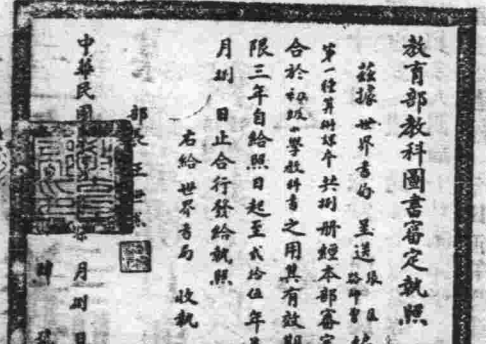 教育部教科圖書審定執照
茲據世界書局呈送
第一種算術課本共捌册經本部審定
合於初級小學教科書之用其有效期
限三年自給照日起至貳拾伍年
月捌日止合行發給執照
右給世界書局收執
部長王世
中華民國
月捌日